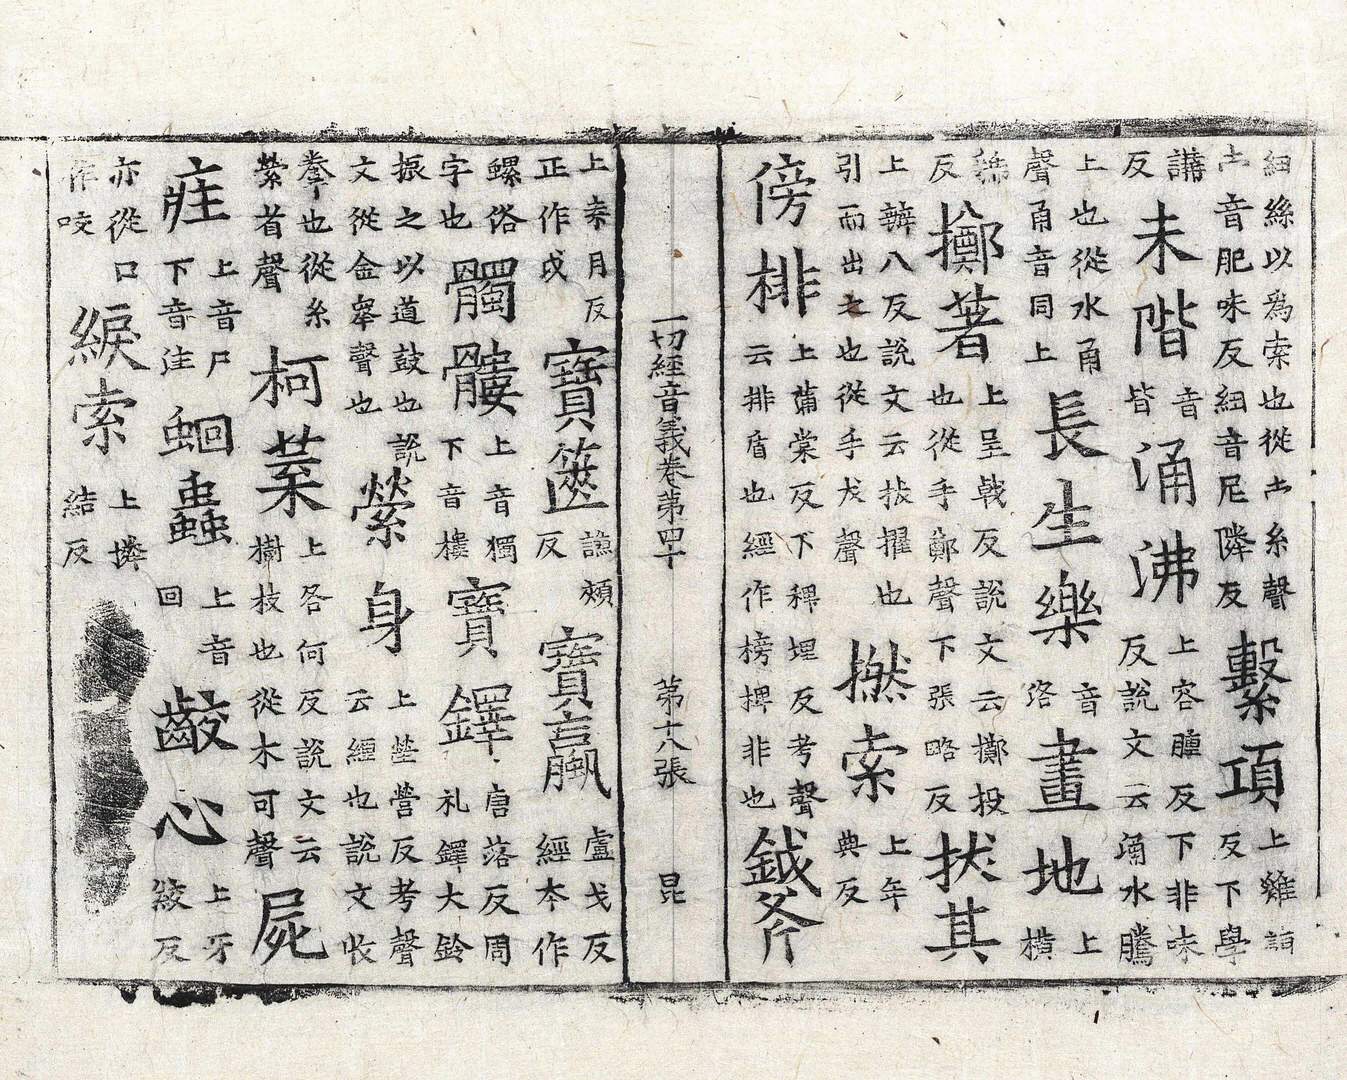 紐絲以為索也從𣎵糸聲𣎵音肥味反紐音尼隣反繫項上雞詣反下學
講反未階音皆涌沸上容腫反下非味反說文云涌水騰
上也從水甬聲甬音同上長生樂音洛畫地上橫
號反擲著上呈戟反說文云擲投也從手鄭聲下張略反拔其
上辦八反說文云拔擢也引而出之也從手犮聲撚索上年典反
傍排上蒲棠反下稗埋反考聲云排盾也經作榜捭非也鉞斧
一切經音義卷第四十 第十八張 昆
上袁月反正作戉寶篋謙頰反寶蠃盧戈反經本作
螺俗字也髑髏上音獨下音樓寶鐸唐落反周礼鐸大鈴
振之以道鼓也說文從金睪聲也縈身上塋營反考聲云縆也說文收
拳也從糸縈省聲柯葉上各何反說文云樹枝也從木可聲屍
疰上音尸下音注蛔蟲上音回齩心上牙絞反
亦從口作咬綟索上憐結反